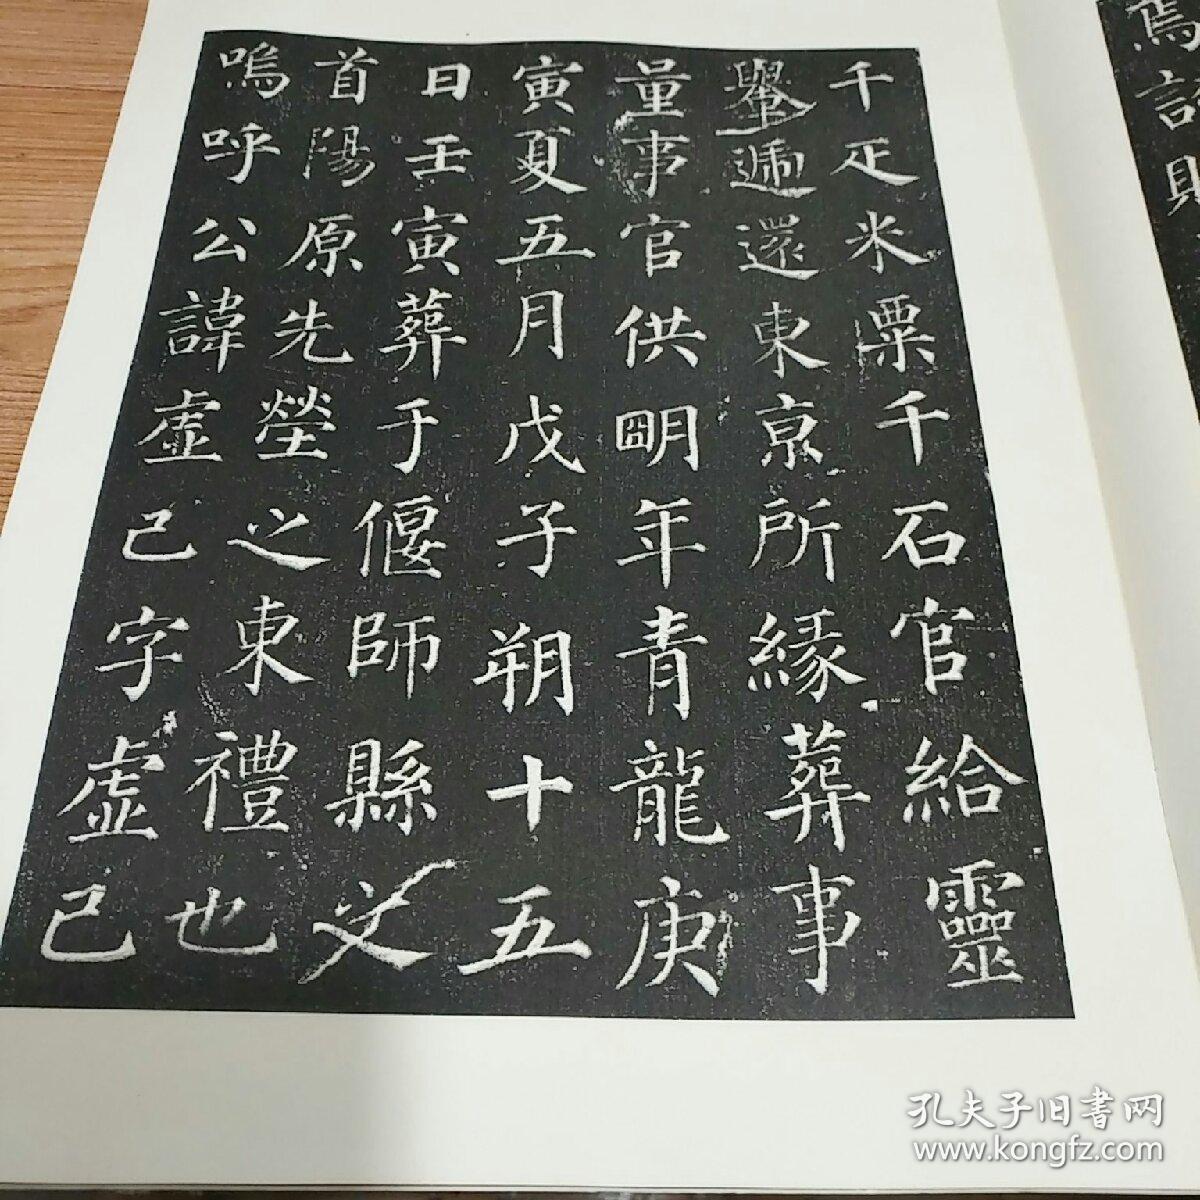 焉
千疋米粟千石官給靈
轝遞還東亰所緣葬事
量事官供朙年青龍庚
寅夏五月戊子朔十五
日壬寅葬于偃師縣之
首陽原先塋之東禮也
嗚呼公諱虛己字虛己
孔夫子旧書网
www.kongfz.com